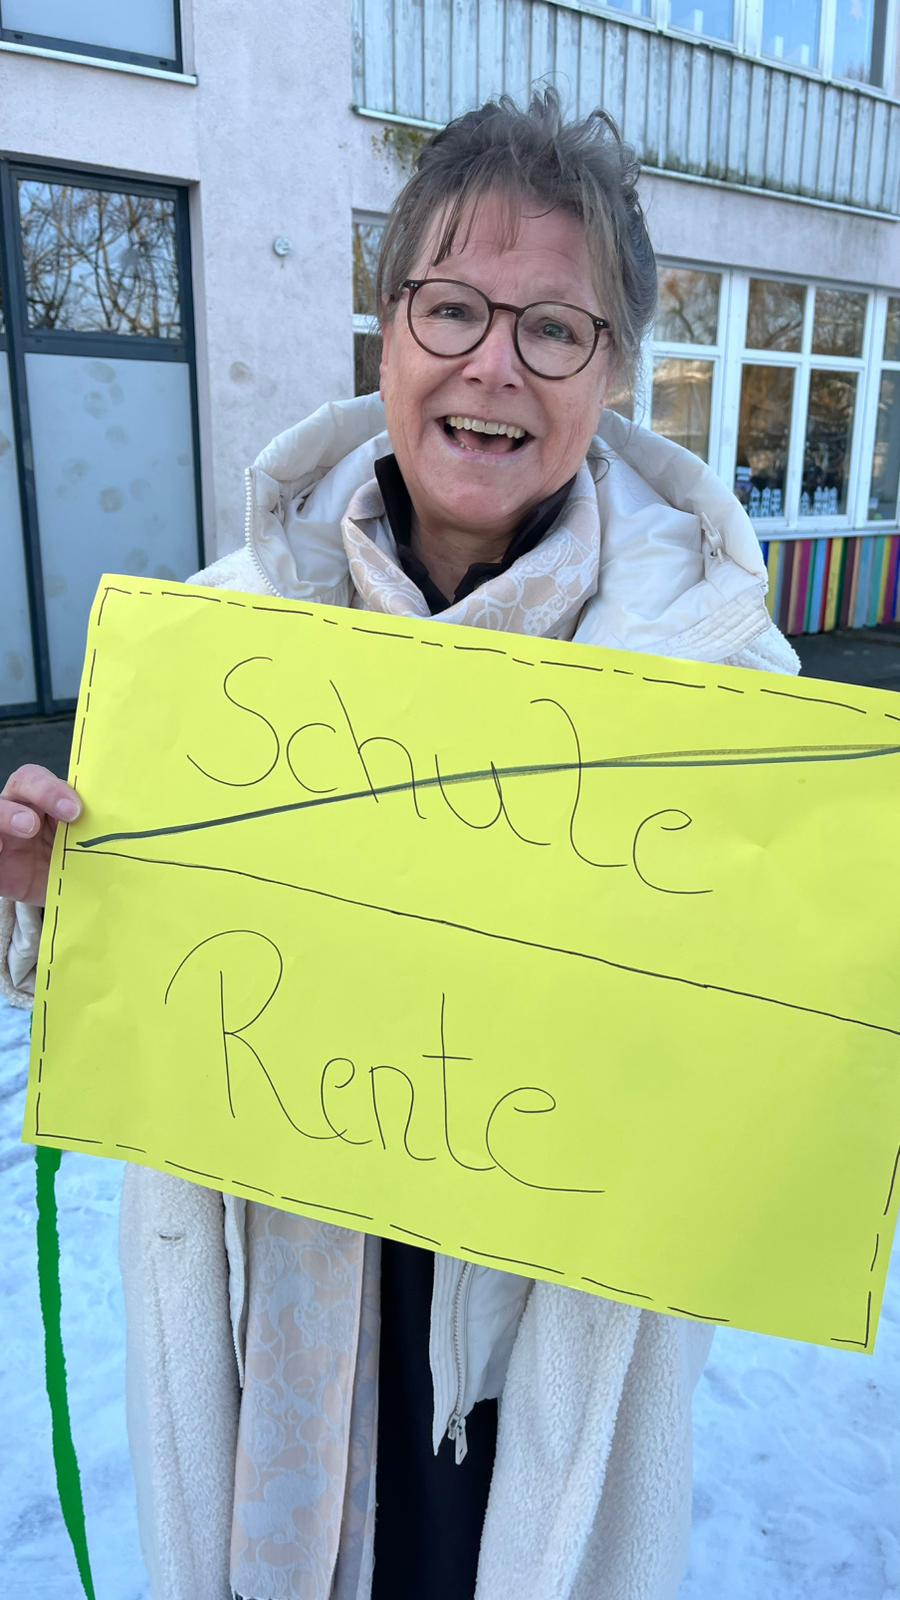 Schule
Rente